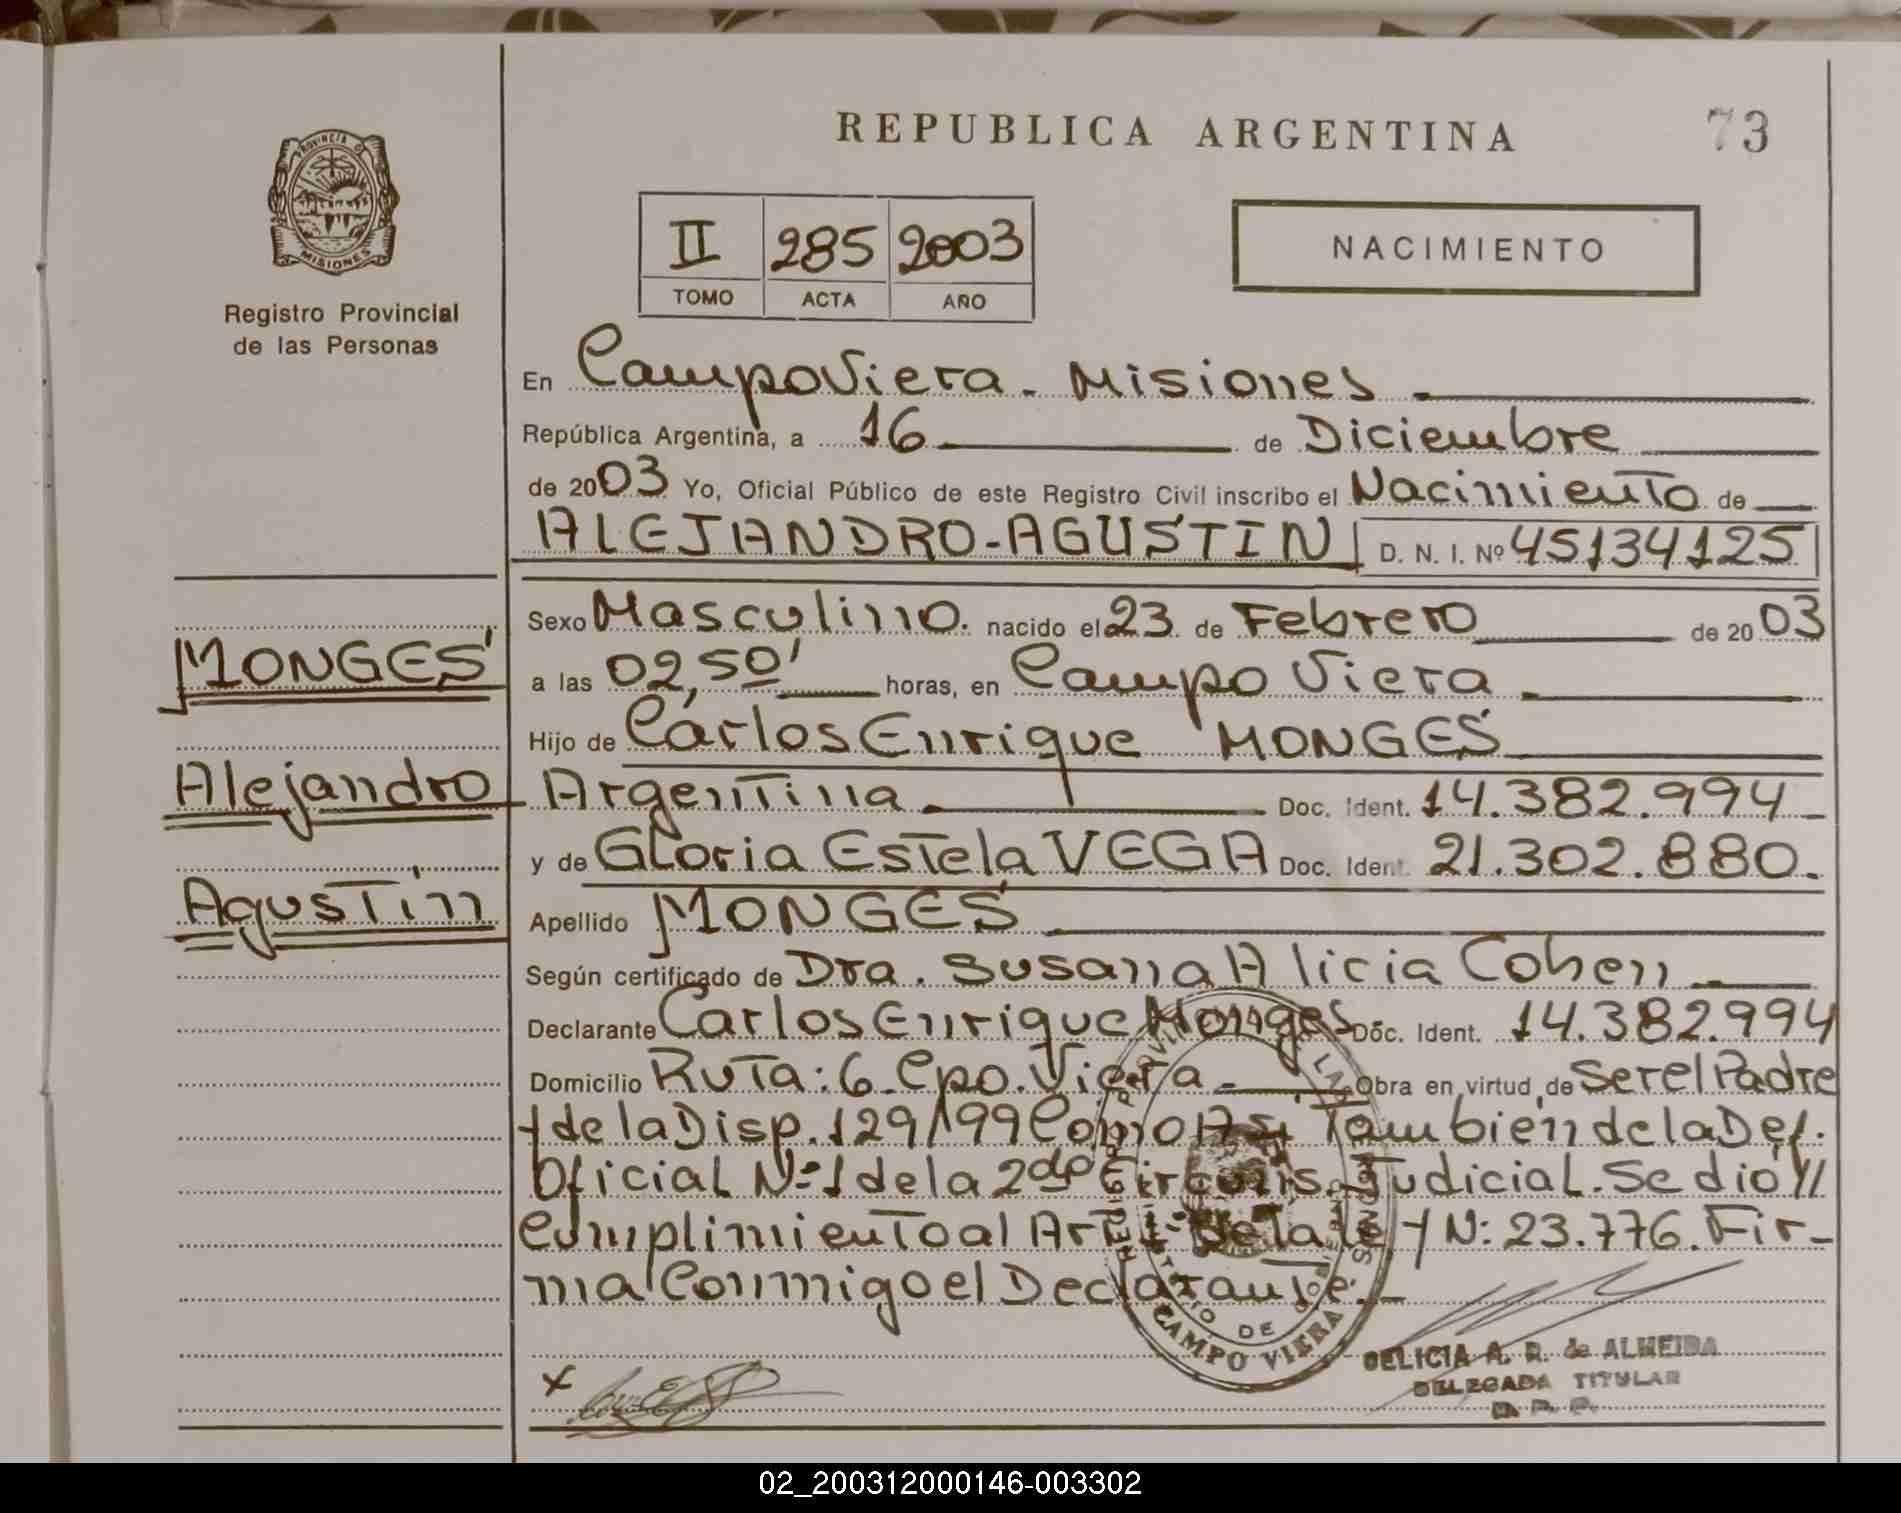 REPUBLICA ARGENTINA
73
PROVINCIA D
MISIONES
Registro Provincial
de las Personas
II 285 2003
TOMO ACTA AÑO
NACIMIENTO
En Campo Viera - Misiones
República Argentina, a 16 de Diciembre
de 2003 Yo, Oficial Público de este Registro Civil inscribo el Nacimiento de
ALEJANDRO-AGUSTIN D. N. I. Nº 45134125
Sexo Masculino. nacido el 23 de Febrero de 2003
MONGES
a las 02,50' horas, en Campo Viera
Hijo de Carlos Enrique MONGES
Alejandro
Argentina Doc. Ident. 14.382.994
y de Gloria Estela VEGA Doc. Ident. 21.302.880.
Agustin
Apellido MONGES
Según certificado de Dra. Susana Alicia Cohen
Declarante Carlos Enrique Monges Doc. Ident. 14.382.994
Domicilio Ruta: 6 Cpo. Viera Obra en virtud de Ser el Padre
y de la Disp. 129/99 Como Asi Tambien de la Def.
Oficial Nº 1 de la 2da Circuns. Judicial. Se dió //
Cumplimiento al Art. de la ley N: 23.776. Fir-
ma Conmigo el Declarante.-
CAMPO VIERA
x
DELICIA A. R. de ALMEIDA
DELEGADA TITULAR
R. P. P.
02_200312000146-003302